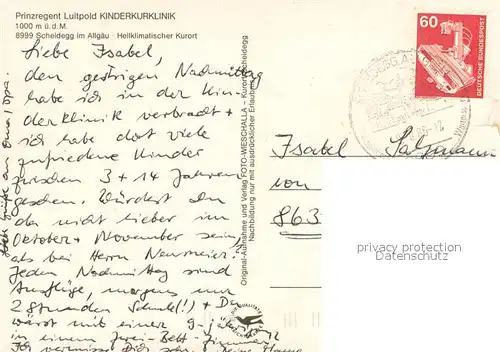 Prinzregent Luitpold KINDERKURKLINIK
1000 m ü.d.M.
8999 Scheidegg im Allgäu · Heilklimatischer Kurort
Liebe Isabel,
den gestrigen Nachmittag
habe ich in der Kin-
derklinik verbracht +
ich habe dort viele
zufriedene Kinder
zwischen 3 + 14 Jahren
gesehen. Würdest Du
da nicht lieber im
Oktober + November sein,
als bei Herrn Neumeier?
Jeden Nachmittag sind
Ausflüge, morgens nur
2 Stunden Schule(!) + Du
wärst mit einer 9-j
in einem Zwei-Bett-Zimmer
Ich vermisse Dich sehr.
Original-Aufnahme und Verlag FOTO-WESCHALLA – Kurort Scheidegg
Nachbildung nur mit ausdrücklicher Erlaubnis
60
DEUTSCHE BUNDESPOST
Isabel
von
863
privacy protection
Datenschutz